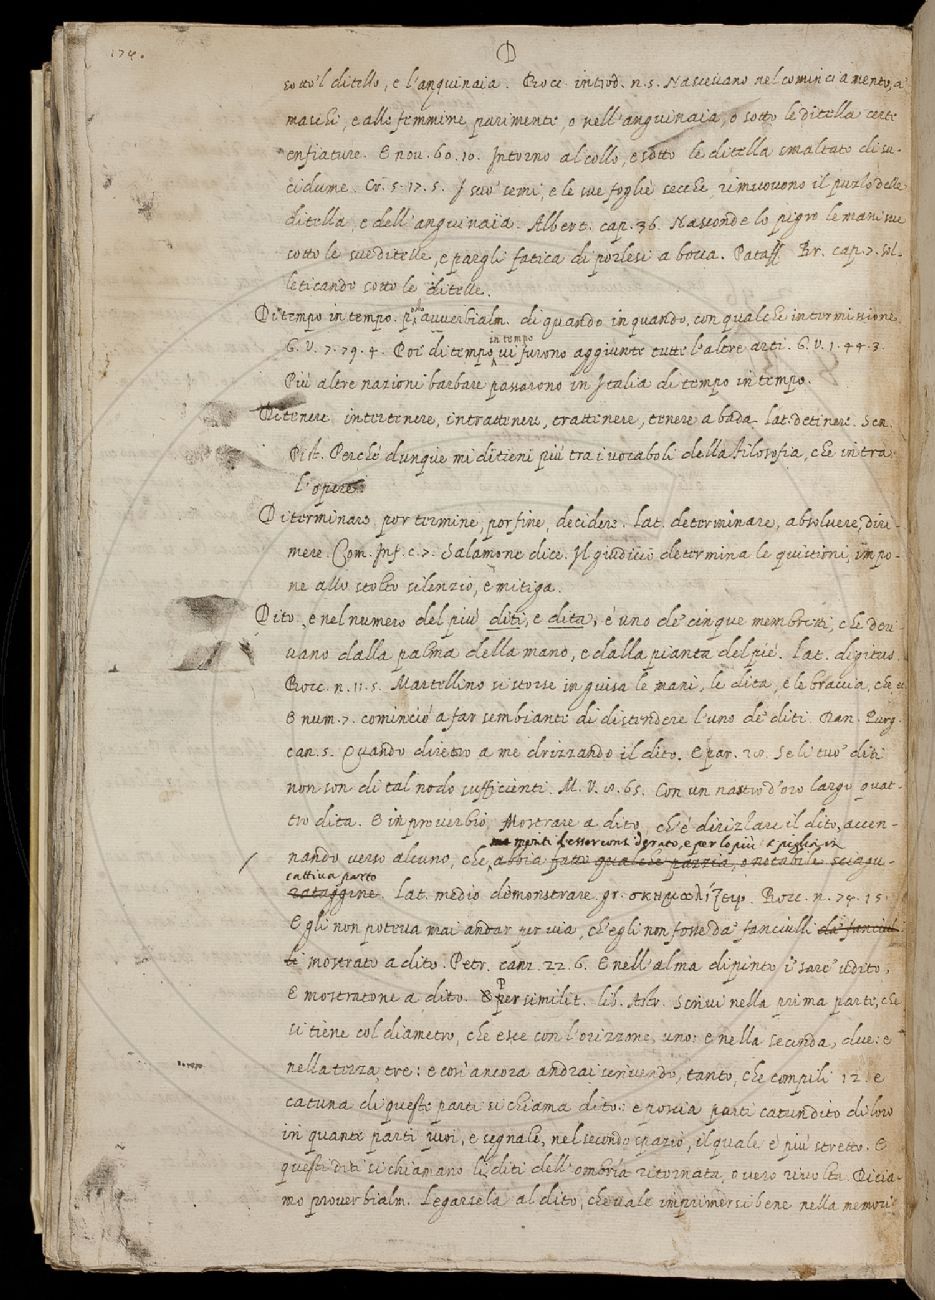 174.
D
sotto'l ditello, e l'anguinaia. Bocc. introd. n. 5. Nascevano nel cominciamento, a'
maschi, e alle femmine parimente, o nell'anguinaia, o sotto le ditella certe
enfiature. E nov. 60. 10. Intorno al collo, e sotto le ditella smaltato di su-
cidume. Cr. 5. 17. 5. I suo' semi, e le sue foglie secche, rimuovono il puzzo delle
ditella, e dell'anguinaia. Albert. cap. 36. Nasconde lo pigro le mani sue
sotto le sue ditelle, e paregli fatica di porlesi a bocca. Pataff. Br. cap. 7. Sol-
leticando sotto le ditelle.
Di tempo in tempo. posto avverbialm. di quando in quando, con qualche intermissione.
G. V. 7. 79. 4. Poi di tempo in tempo vi furono aggiunte tutte l'altre arti. G. V. 1. 44. 3.
Più altre nazioni barbare passarono in Italia di tempo in tempo.
Ditenere, intertenere, intrattenere, trattenere, tenere a bada. Lat. detinere. Sen.
Pist. Perchè dunque mi ditieni più tra i vocaboli della filosofia, che intra
l'opere.
Diterminare, por termine, por fine, decidere. Lat. determinare, absolvere, diri-
mere. Com. Inf. c. 7. Salamone dice. Il giudicio determina le quistioni, impo-
ne allo stolto silenzio, e mitiga.
Dito, e nel numero del più diti, e dita, è uno de' cinque membretti, che deri-
vano dalla palma della mano, e dalla pianta del piè. Lat. digitus.
Bocc. n. 11. 5. Martellino si storse in guisa le mani, le dita, e le braccia, che, et
E num. 7. cominciò a far sembiante di distendere l'uno de' diti. Dan. Purg.
can. 5. Quando diretro a me drizzando il dito. E par. 28. Se li tuo' diti
non son di tal nodo sufficienti. M. V. 8. 65. Con un nastro d'oro largo quat-
tro dita. E in proverbio, Mostrare a dito, ch'è dirizzare il dito, accen-
ma meriti d'esser considerato, e per lo più si piglia in
nando verso alcuno, che abbia fatto qualche pazzia, o notabile sciagu-
cattiva parte
rataggine. Lat. medio demonstrare. gr. Bocc. n. 74. 15.
Egli non poteva mai andar per via, ch'egli non fosse da' fanciulli da' fanciul-
li mostrato a dito. Petr. canz. 22. 6. E nell'alma dipinto i' sare' udito,
E mostratone a dito. E per similit. lib. Astr. Scrivi nella prima parte, che
si tiene col diametro, che esce con l'orizzone, uno: e nella seconda, due: e
nella terza, tre: e così ancora andrai scrivendo, tanto, che compili 12. e
catuna di queste parti si chiama dito: e poscia parti catun dito di loro
in quante parti vuoi, e segnale, nel secondo spazio, il quale è più stretto. E
questi diti si chiamano li diti dell'ombria ritornata, overo rivolta. Dicia-
mo proverbialm. Legarsela al dito, che vale imprimersi bene nella memori